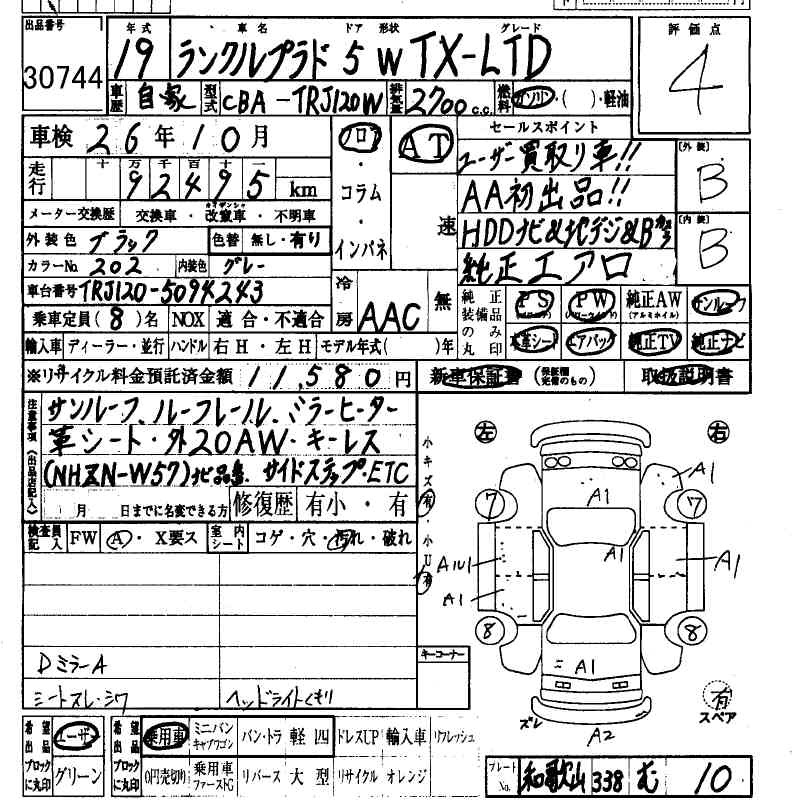 出品番号
30744
年式 車名 ドア 形状 グレード
19 ランクルプラド 5 W TX-LTD
評価点
4
車歴 自家 型式 CBA-TRJ120W 排気量 2700 c.c. 燃料 ガソリン・( )・軽油
車検 26年10月
フロア・コラム・インパネ
AT
速
セールスポイント
ユーザー買取り車!!
AA初出品!!
HDDナビ&地デジ&Bカメラ
純正エアロ
[外装]
B
[内装]
B
走行 十万千百十一
92495 km
メーター交換歴 交換車・改ザン車・不明車
外装色 ブラック 色替 無し・有り
カラーNo. 202 内装色 グレー
車台番号 TRJ120-5094243
冷房 AAC 無
乗車定員(8)名 NOX 適合・不適合
純正装備品のみ丸印 PS PW 純正AW (アルミホイル) サンルーフ
本革シート エアバッグ 純正TV 純正ナビ
輸入車 ディーラー・並行 ハンドル 右H・左H モデル年式( )年
※リサイクル料金預託済金額 11,580円
新車保証書 (保証欄完備のもの) 取扱説明書
注意事項(出品店記入)
サンルーフ、ルーフレール、ミラーヒーター
革シート・外20AW・キーレス
(NHZN-W57)ナビ品番 サイドステップ・ETC
月 日までに名変できる方 修復歴 有小・有
検査員記入 FW A・X要ス 室内シート コゲ・穴・汚れ・破れ
小キズ有・小U有
左 右
A1
7 7
A1
AU1 A1 A1
A1
8 8
A1
ズレ A2
有
スペア
DミラーA
シートスレ・シワ ヘッドライトくもり
キーコーナー
希望出品ブロックに丸印 ユーザー グリーン
希望出品ブロックに丸印 乗用車 ミニバンキャブワゴン バン・トラ 軽四 ドレスUP 輸入車 リフレッシュ
0円売切り 乗用車ファーストC リバース 大型 リサイクル オレンジ
プレートNo. 和歌山 338 む 10